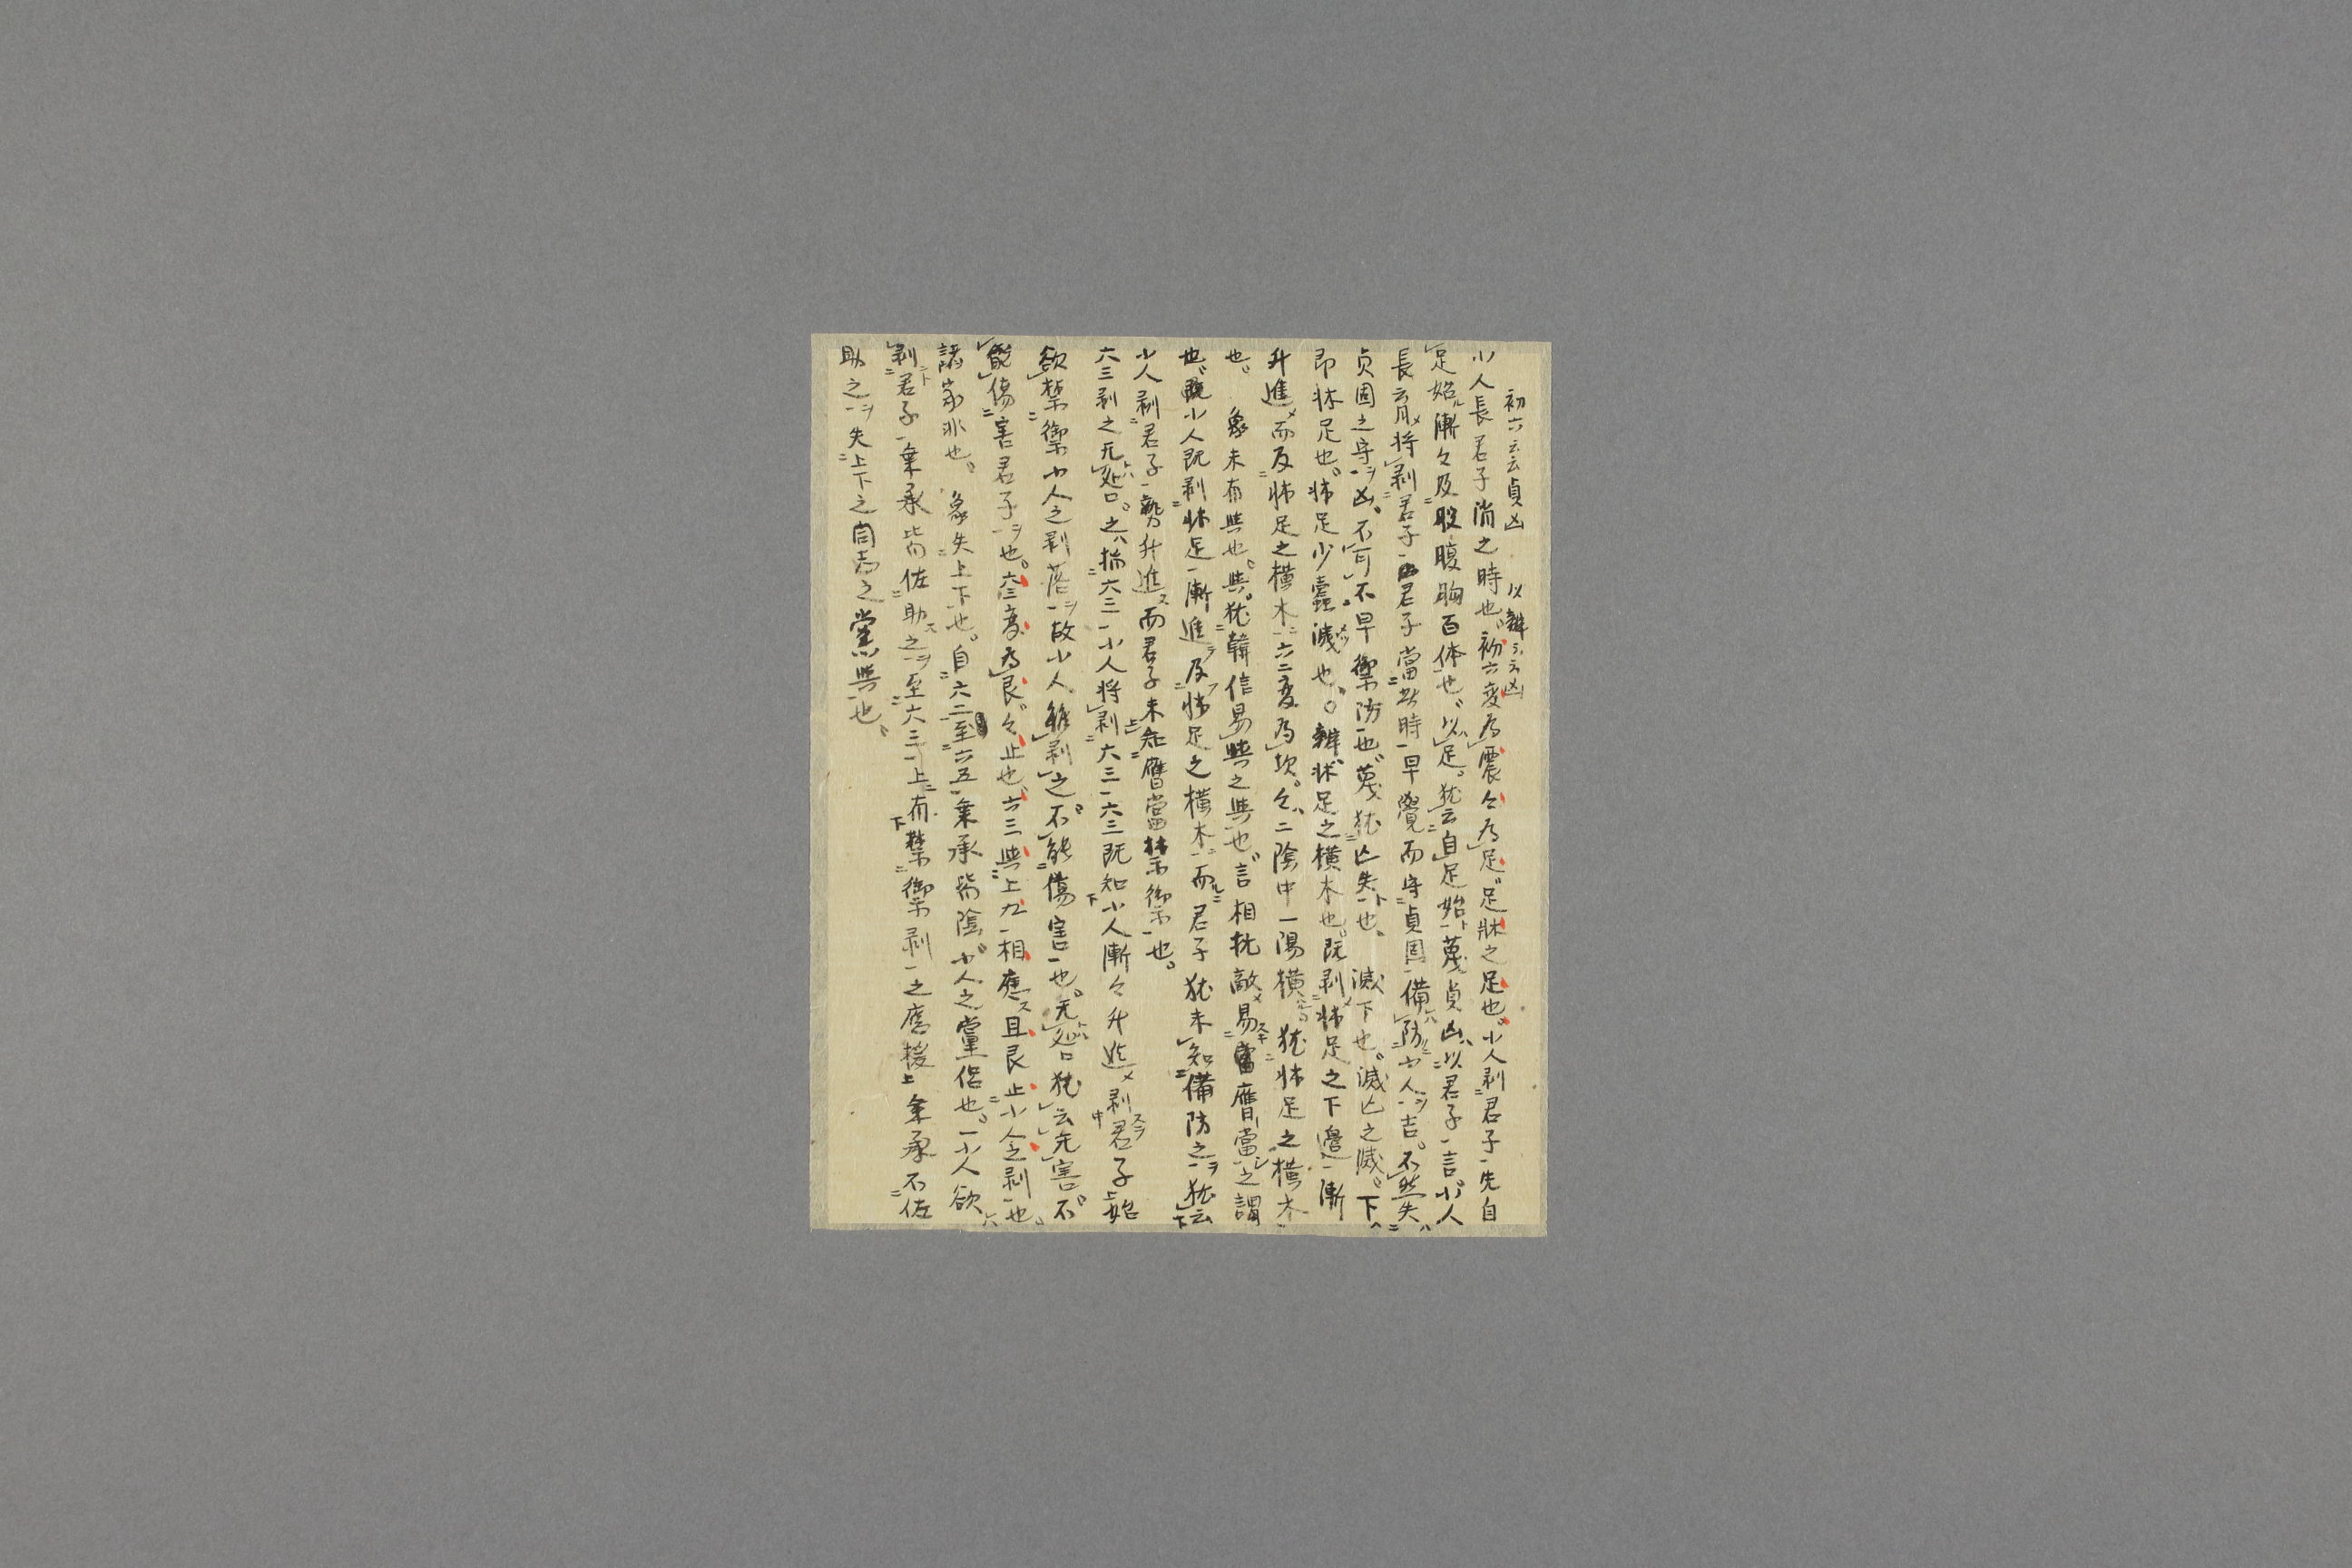 初六云云貞凶　以辨云云凶
小人長君子消之時也初六変為震々為足足牀之足也小人剥君子先自
足始漸々及股腹胸百体也以足猶云自足始蔑貞凶以君子言小人
長云月将剥君子君子當此時早覺而守貞固備防小人吉不然失
貞固之守凶不可不早禦防也蔑猶亡失也　滅下也滅亡之滅下
即牀足也牀足少蠹滅也〇辨牀足之横木也既剥牀足之下邊漸
升進而及牀足之横木六二変為坎々二陰中一陽横猶牀足之横木
也　象未有與也與猶韓信易與之與也言相抗敵易當膺當之謂
也小人既剥牀足漸進及牀足之横木而君子猶未知備防之猶云
小人剥君子勢升進而君子未知膺當禁御也
六三剥之无咎之指六三小人将剥六三六三既知小人漸々升進剥君子始
欲禁禦小人之剥落故小人雖剥之不能傷害也无咎猶云无害不
能傷害君子也六三変為艮々止也六三與上九相應且艮止小人之剥也
諸家非也　象失上下也自六二至六五乗承皆陰小人之黨侶也小人欲
剥君子乗承皆佐助之至六三上有禁御剥之應援上乗承不佐
助之失上下之同志之黨與也